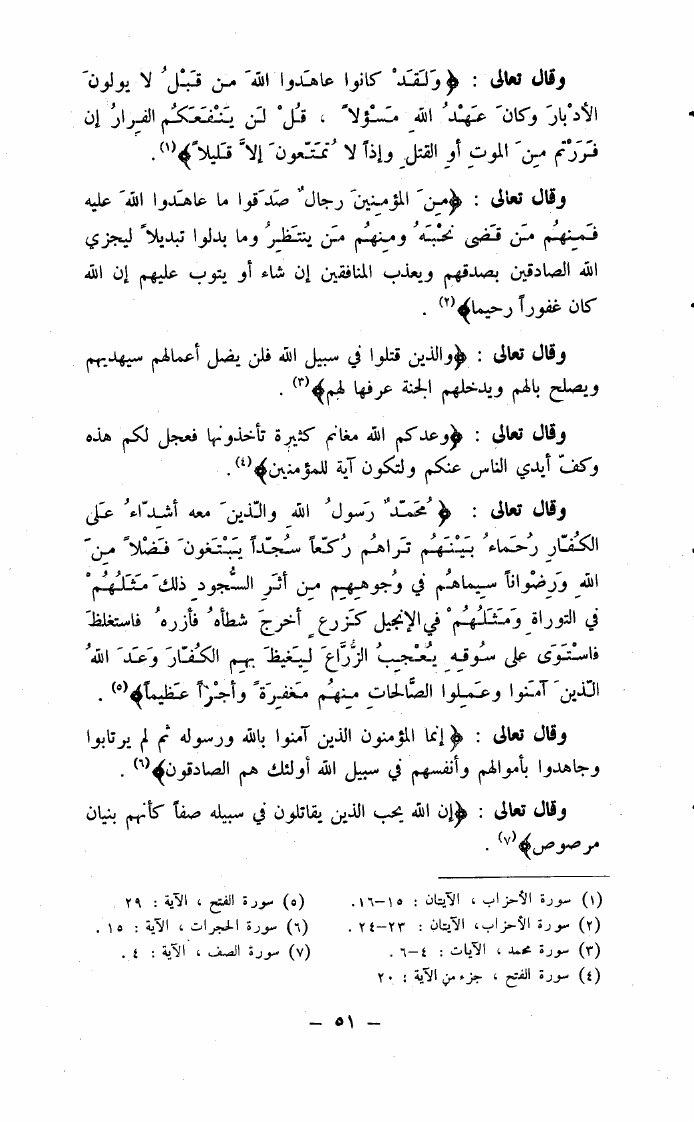 وقال تعالى : ﴿وَلَقَدْ كانوا عاهَدوا اللهَ مـن قَبْلُ لا يولونَ
الأدْبارَ وكانَ عَهْدُ اللهِ مَسْؤلاً ، قُلْ لَـن يَنْفَعَكُم الفِرارُ إن
فَرَرْتم مِـنَ الموتِ أو القتلِ وإذاً لا تُمَتَّعونَ إلاَّ قَليلاً﴾(١).
وقال تعالى : ﴿مـِنَ المؤمنينَ رجالٌ صَدَقوا ما عاهَدوا اللهَ عليه
فَمِنهُم مَن قَضى نَحْبَهُ ومِنهُم مَن يَنتَظِرُ وما بدلوا تبديلاً ليجزي
الله الصادقين بصدقهم ويعذب المنافقين إن شاء أو يتوب عليهم إن الله
كان غفوراً رحيما﴾(٢) .
وقال تعالى : ﴿والذين قتلوا في سبيل الله فلن يضل أعمالهم سيهديهم
ويصلح بالهم ويدخلهم الجنة عرفها لهم﴾(٣) .
وقال تعالى : ﴿وعدكم الله مغانم كثيرة تأخذونها فعجل لكم هذه
وكفّ أيدي الناس عنكم ولتكون آية للمؤمنين﴾(٤).
وقال تعالى : ﴿مُحَمّدٌ رَسولُ اللهِ والّذينَ معه أشدّاءُ عَلى
الكُفّارِ رُحَماءُ بَيْنَهُم تَراهُم رُكّعاً سُجّداً يَبْتَغونَ فَضْلاً مِـنَ
اللهِ وَرِضْواناً سيماهُم في وُجوهِهِم مـن أثَرِ السُّجودِ ذلكَ مَثَلُهُمْ
في التوراةِ وَمَثَلُهُمْ في الإنجيل كَزرعٍ أخرجَ شطأهُ فأزرهُ فاستغلظَ
فاسْتَوَى على سُوقِهِ يُعْجِبُ الزُّرَّاعَ لِيَغيظَ بِهِم الكفّارَ وَعَدَ اللهُ
الّذينَ آمَنوا وعَمِلوا الصَّالحاتِ مِنهُم مَغفِرَةً وأجْراً عَظيماً﴾(٥) .
وقال تعالى : ﴿ إنما المؤمنون الذين آمنوا بالله ورسوله ثم لم يرتابوا
وجاهدوا بأموالهم وأنفسهم في سبيل الله أولئك هم الصادقون﴾(٦) .
وقال تعالى : ﴿إن الله يحب الذين يقاتلون في سبيله صفاً كأنهم بنيان
مرصوص﴾(٧) .
(١) سورة الأحزاب ، الآيتان : ١٥-١٦.
(٢) سورة الأحزاب، الآيتان : ٢٣-٢٤ .
(٣) سورة محمد ، الآيات : ٤-٦ .
(٤) سورة الفتح ، جزء من الآية : ٢٠
(٥) سورة الفتح ، الآية : ٢٩
(٦) سورة الحجرات ، الآية : ١٥ .
(٧) سورة الصف ، الآية : ٤ .
– ٥١ –